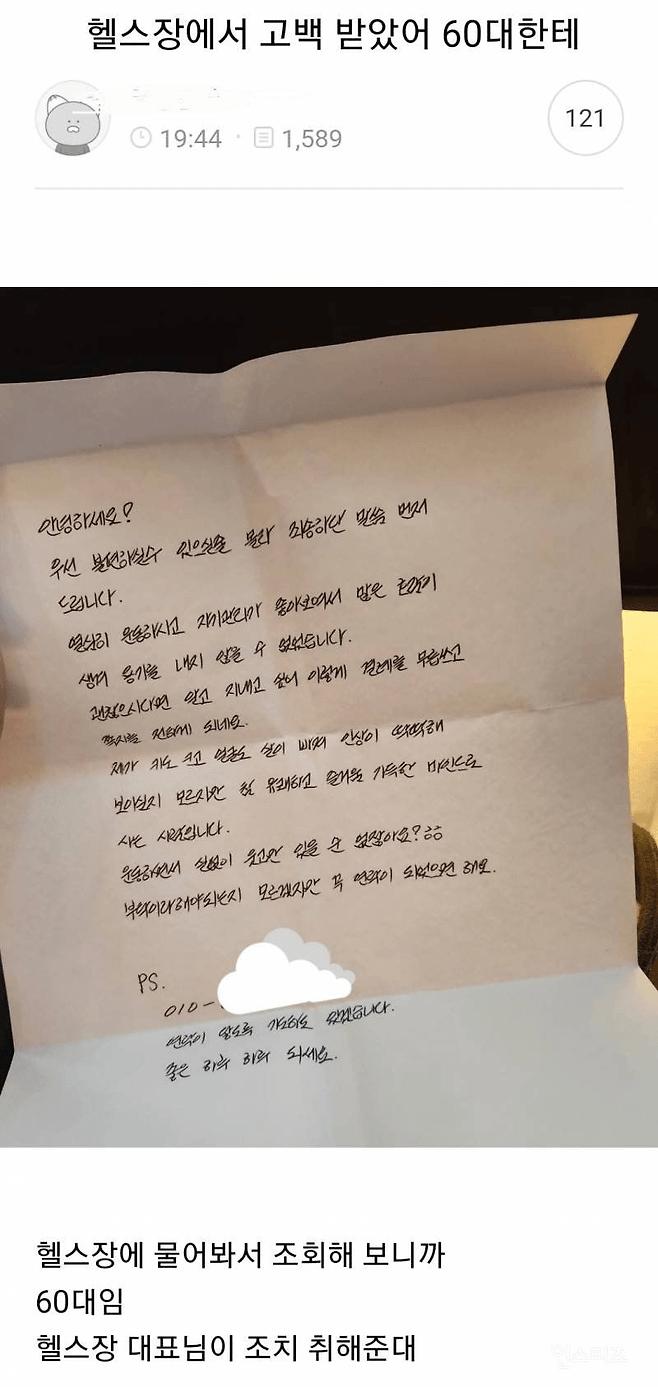 헬스장에서 고백 받았어 60대한테
19:44 · 1,589
121
안녕하세요?
우선 불편하실수 있으실을 몰라 죄송하단 말씀 먼저
드립니다.
열심히 운동하시고 자기관리가 좋아보여서 많은 호감이
생겨 용기를 내지 않을 수 없었습니다.
괜찮으시다면 알고 지내고 싶어 이렇게 결례를 무릅쓰고
쪽지를 전하게 되네요.
제가 키도 크고 얼굴도 살이 빠져 인상이 딱딱해
보이실지 모르지만 참 유쾌하고 즐거움 가득한 마인드로
사는 사람입니다.
운동하면서 실없이 웃고만 있을 순 없잖아요?ㅎㅎ
부탁이라해야되는지 모르겠지만 꼭 연락이 되었으면 해요.
PS.
010-
연락이 닿도록 기도하고 있겠습니다.
좋은 하루 하루 되세요.
헬스장에 물어봐서 조회해 보니까
60대임
헬스장 대표님이 조치 취해준대
인스티즈